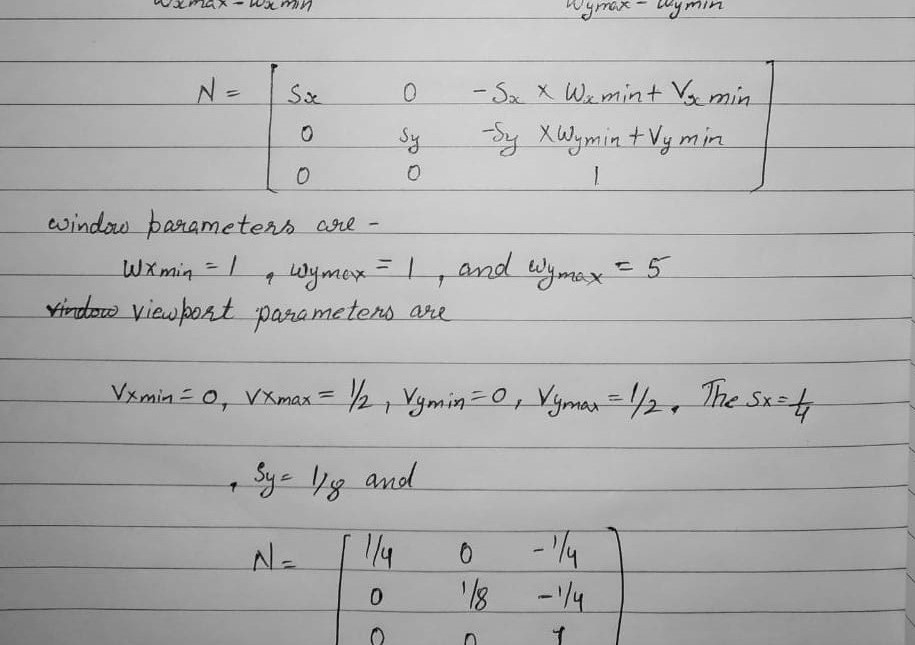 Wxmax - Wxmin Wymax - Wymin
N = Sx 0 -Sx × Wxmin + Vxmin
0 Sy -Sy × Wymin + Vymin
0 0 1
window parameters are -
Wxmin = 1 , wymax = 1 , and wymax = 5
vindow viewport parameters are
Vxmin = 0, Vxmax = 1/2 , Vymin = 0, Vymax = 1/2 . The Sx = 1/4
, Sy = 1/8 and
N = 1/4 0 -1/4
0 1/8 -1/4
0 0 1